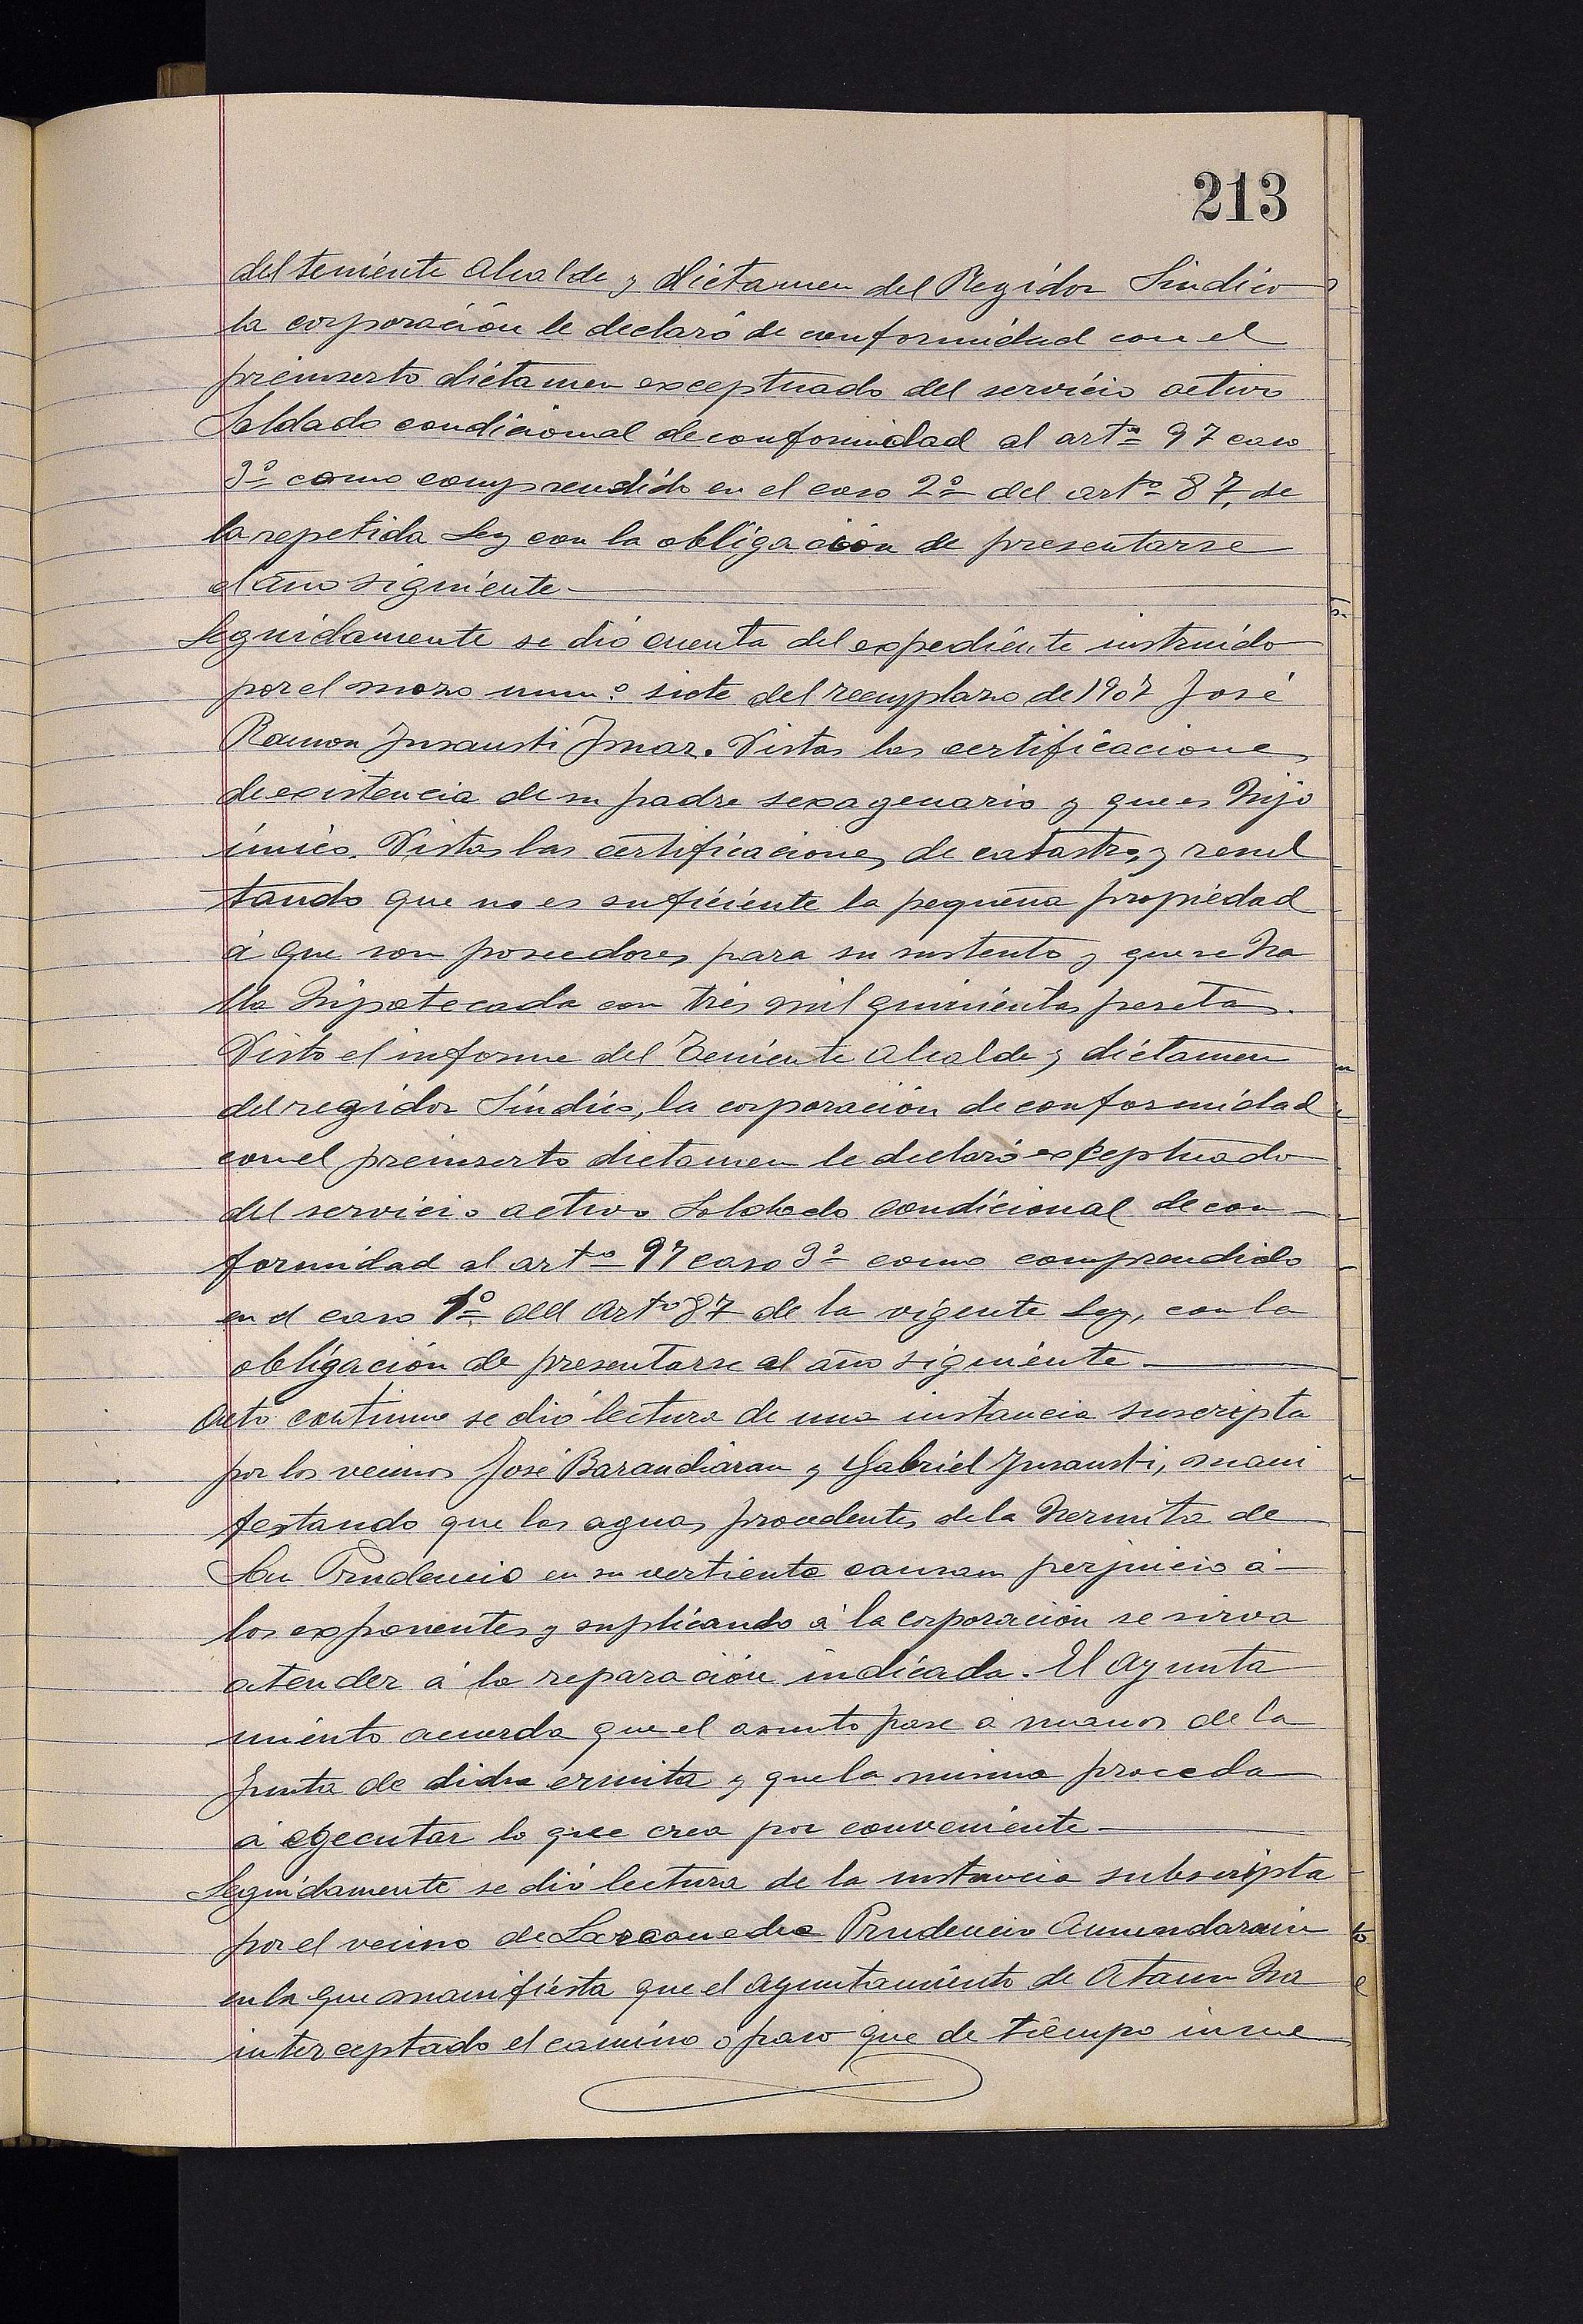 213
del teniente Alcalde y dictamen del Regidor Sindico
la corporación le declaró de conformidad con el
preinserto dictamen exceptuado del servicio activo
Soldado condicional de conformidad al artº 97 caso
3º como comprendido en el caso 2º del artº 87, de
la repetida Ley con la obligación de presentarse
el año siguiente
Seguidamente se dió cuenta del expediente instruido
por el mozo num.º siete del reemplazo de 1907 José
Ramon Insausti Imaz. Vistas las certificaciones
de existencia de su padre sexagenario y que es hijo
único. Vistas las certificaciones de catastro, y resul
tando que no es suficiente la pequeña propiedad
á que son poseedores para su sustento y que se ha
lla hipotecada con tres mil quinientas pesetas.
Visto el informe del Teniente Alcalde y dictamen
del regidor Síndico, la corporación de conformidad
con el preinserto dictamen le declaró exceptuado
del servicio activo Soldado condicional de con
formidad al artº 97 caso 3º como comprendido
en el caso 1º del artº 87 de la vigente Ley, con la
obligación de presentarse al año siguiente.
Acto continuo se dió lectura de una instancia suscripta
por los vecinos José Barandiaran y Gabriel Insausti, mani
festando que las aguas procedentes de la hermita de
San Prudencio en su vertiente causan perjuicio á
los exponentes y suplicando á la corporación se sirva
atender á la reparación indicada. El Ayunta
miento acuerda que el asunto pase á manos de la
Junta de dicha ermita y que la misma proceda
á egecutar lo que crea por conveniente
Seguidamente se dió lectura de la instancia subscripta
por el vecino de Lazcano Prudencio Aumundarain
en la que manifiesta que el Ayuntamiento de Ataun ha
interceptado el camino ó paso que de tiempo inme